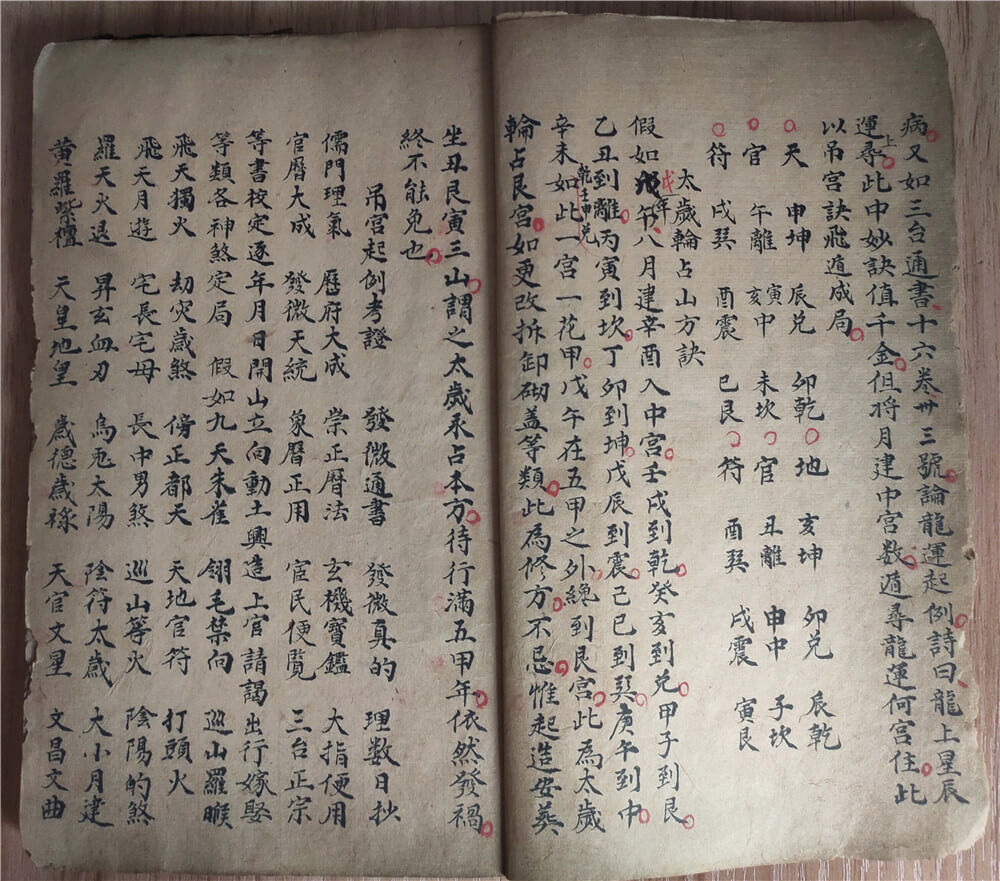 病又如三台通書十六卷卅三號論龍運起例詩曰龍上星辰
運上尋此中妙訣值千金但將月建中宮數遁尋龍運何宮住此
以吊宮訣飛遁成局
天 申坤 辰兌 卯乾 地 亥坤 卯兌 辰乾
官 午離 寅中 亥 未坎 官 丑離 申中 子坎
符 戌巽 酉震 巳艮 符 酉巽 戌震 寅艮
太歲輪占山方訣
假如戊午年八月建辛酉入中宮壬戌到乾癸亥到兌甲子到艮
乙丑到離丙寅到坎丁卯到坤戊辰到震己巳到巽庚午到中
辛未如此一宮一花甲戊午在五甲之外纔到艮宮此為太歲
乾壬申兌
輪占艮宮如更改拆卸砌蓋等類此為修方不忌惟起造安葬
坐丑艮寅三山謂之太歲永占本方待行滿五甲年依然發禍
終不能免也
吊宮起例考證 發微通書 發微真的 理數日抄
儒門理氣 曆府大成 崇正曆法 玄機寶鑑 大指便用
官曆大成 發微天統 象曆正用 官民便覧 三台正宗
等書校定逐年月日開山立向動土興造上官請謁出行嫁娶
等類各神煞定局 假如九天朱雀 翎毛禁向 巡山羅睺
飛天獨火 刧灾歲煞 傍正都天 天地官符 打頭火
飛天月遊 宅長宅母 長中男煞 巡山等火 陰陽的煞
羅天火退 昇玄血刃 烏兎太陽 陰符太歲 大小月建
黄羅紫檀 天皇地皇 歲德歲祿 天官文星 文昌文曲